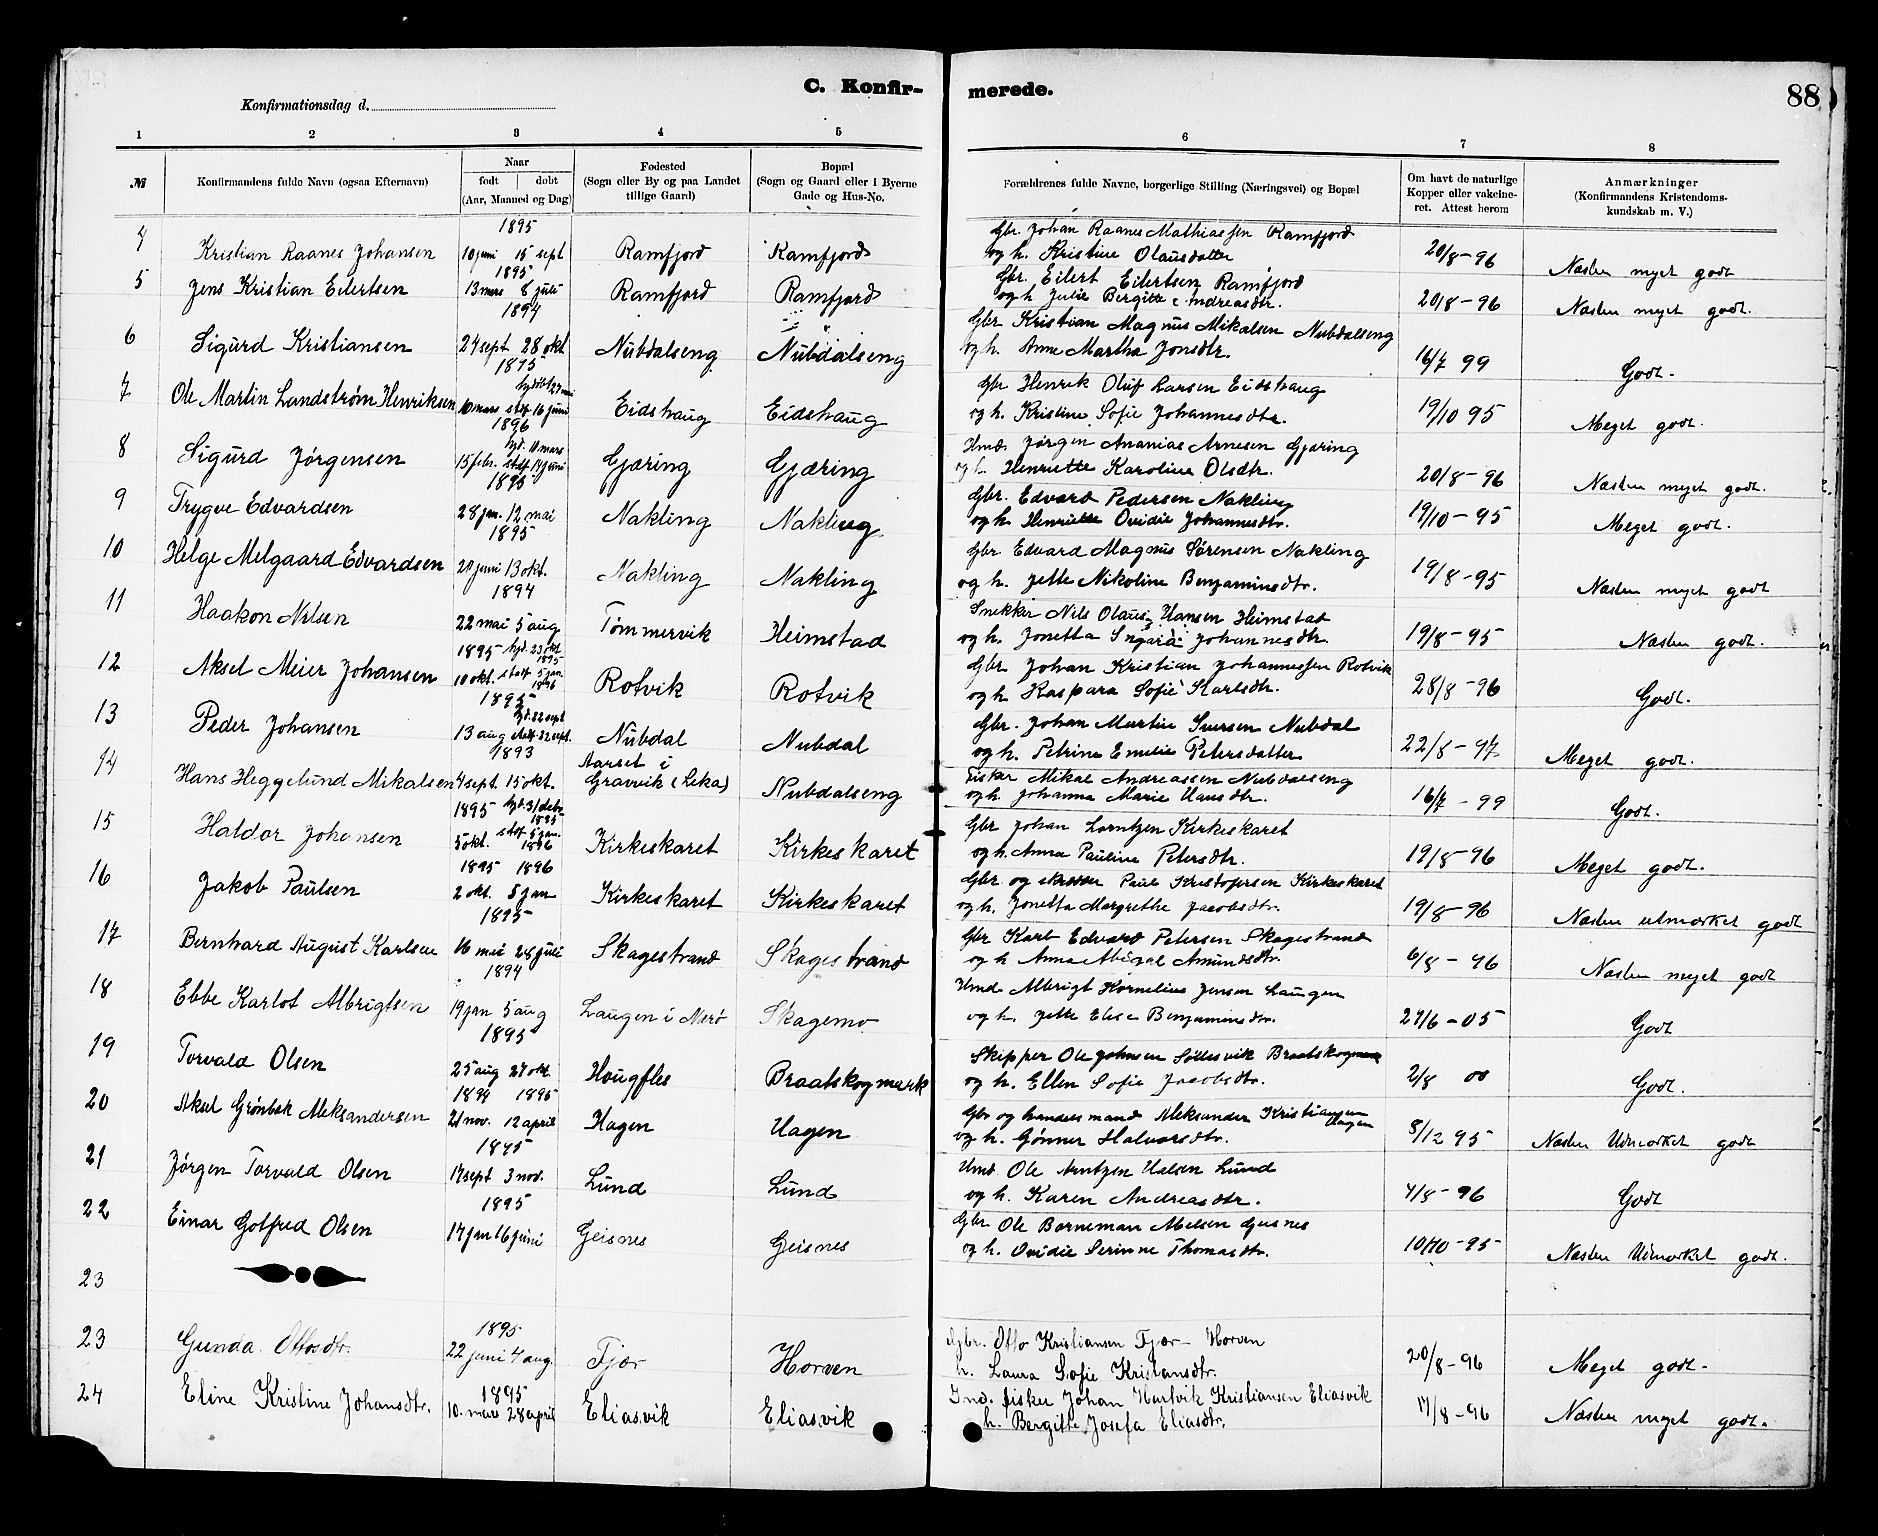 C. Konfir- merede.
88
Konfirmationsdag d.
1 2 3 4 5 6 7 8
№
Konfirmandens fulde Navn (ogsaa Efternavn)
Naar
født døbt
(Aar, Maaned og Dag)
Fødested
(Sogn eller By og paa Landet
tillige Gaard)
Bopæl
(Sogn og Gaard eller i Byerne
Gade og Hus-No.
Forældrenes fulde Navne, borgerlige Stilling (Næringsvei) og Bopæl
Om havt de naturlige
Kopper eller vakcine-
ret. Attest herom
Anmærkninger
(Konfirmandens Kristendoms-
kundskab m. V.)
1895
4 Kristian Raanes Johansen 10 juni 15 sept Ramfjord Ramfjord Gbr. Johan Raanes Mathiassen Ramfjord
og h. Kristine Olausdatter 20/8-96 Næsten meget godt
1895
5 Jens Kristian Eilertsen 13 mars 8 juli Ramfjord Ramfjord Gbr. Eilert Eilertsen Ramfjord
og h. Julie Bergitte Andreasdtr. 20/8-96 Næsten meget godt.
1894
6 Sigurd Kristiansen 27 sept 28 okt Nubdalseng Nubdalseng Gbr Kristian Magnus Mikalsen Nubdalseng
og h. Anne Martha Jonsdtr. 16/7 99 Godt.
1895
7 Ole Martin Lundstrøm Henriksen 10 mars stadf 16 juni Eidshaug Eidshaug Gbr Henrik Oluf Larsen Eidshaug
og h. Kristine Sofie Johannesdtr. 19/10 95 Meget godt.
1896
hjd. 10 mars
8 Sigurd Jørgensen 15 febr. stadf 14 juni Gjæring Gjæring Hmd. Jørgen Ananias Arnesen Gjæring
og h. Henriette Karoline Olsdtr. 20/8-96 Næsten meget godt.
1895
9 Trygve Edvardsen 28 jan. 12 mai Nakling Nakling Gbr. Edvard Pedersen Nakling
og h. Henriette Ovidie Johannesdtr. 19/10-95 Meget godt.
1895
10 Helge Melgaard Edvardsen 20 juni 13 okt. Nakling Nakling Gbr Edvard Magnus Sørensen Nakling
og h. Jette Nikoline Benjaminsdtr. 19/8-95 Næsten meget godt
1894
11 Haakon Nilsen 22 mai 5 aug Tømmervik Heimstad Snekker Nils Olaus Hansen Heimstad
og h. Jonetta Johannesdtr. 19/8-95 Næsten godt.
1895 hjd. 23 okt
1895
12 Aksel Meier Johansen 10 okt. stadf 5 jan. Rotvik Rotvik Gbr Johan Kristian Johannessen Rotvik
1896
og h. Kaspara Sofie Karlsdtr. 28/8-96 Godt.
1895
hjd. 22 sept
13 Peder Johansen 13 aug stadf. 22 sept. Nubdal Nubdal Gbr. Johan Martin Iversen Nubdal
og h. Petrine Emelie Petersdatter 22/8-97 Meget godt.
1893
14 Hans Heggelund Mikalsen 4 sept. 15 okt. Aarset i
Gravvik (Leka) Nubdalseng Fisker Mikal Andreassen Nubdalseng
og h. Johanna Marie Hansdtr. 16/7-99 Godt.
1895 hjd. 31/debr.
1895
15 Haldor Johansen 5 okt. stadf 5 jan. Kirkeskaret Kirkeskaret Gbr Johan Lorntzen Kirkeskaret
1896
og h. Anna Pauline Petersdtr. 19/8-96 Meget godt.
1895 1896
16 Jakob Paulsen 2 okt. 5 jan Kirkeskaret Kirkeskaret Gbr og Paul Kristofersen Kirkeskaret
og h. Jonetta Margrethe Jacobsdtr. 19/8-96 Næsten utmærket godt
1895
17 Bernhard August Karlsen 16 mai 28 juli Skagestrand Skagestrand Gbr Karl Edvard Petersen Skagestrand
og h Anna Abigal Amundsdtr. 6/8-96 Næsten meget godt
1894
18 Ebbe Karlot Albrigtsen 19 jan 5 aug Laugen i Nærø Skagemo Hmd Albrigt Kornelius Jensen Laugen
og h. Jette Elise Benjaminsdtr. 27/6-05 Godt
1895
19 Torvald Olsen 25 aug 27 okt Hougfles Braatskogmark Skipper Ole Johnsen Braatskogmark
og h. Ellen Sofie Jacobsdtr. 2/8 00 Godt.
1894 1895
20 Aksel Grønbek Aleksandersen 21 nov. 12 april Hagen Hagen Gbr og handelsmand Aleksander Kristiansen
Hagen
og h. Gønner Halvorsdtr. 8/12 95 Næsten Udmærket godt
1895
21 Jørgen Torvald Olsen 17 sept 3 nov. Lund Lund Hmd. Ole Arntzen Lund
og h. Karen Andreasdtr. 4/8-96 Godt
1895
22 Einar Gotfred Olsen 17 jan 16 juni Geisnes Geisnes Gbr Ole Borneman Geisnes
og h. Ovidie Serinne Thomasdtr. 10/10-95 Næsten Udmærket godt.
23
1895
23 Gunda Ottosdtr. 22 juni 4 aug. Fjær Horven Gbr. Otto Kristiansen Fjær - Horven
h. Laura Sofie Kristansdtr. 20/8-96 Meget godt.
1895
24 Eline Kristine Johansdtr. 10. mars 28 april Eliasvik Eliasvik Ind. fisker Johan Hartvik Kristiansen Eliasvik
h. Bergitte Josefa Eliasdtr. 17/8-96 Næsten meget godt.